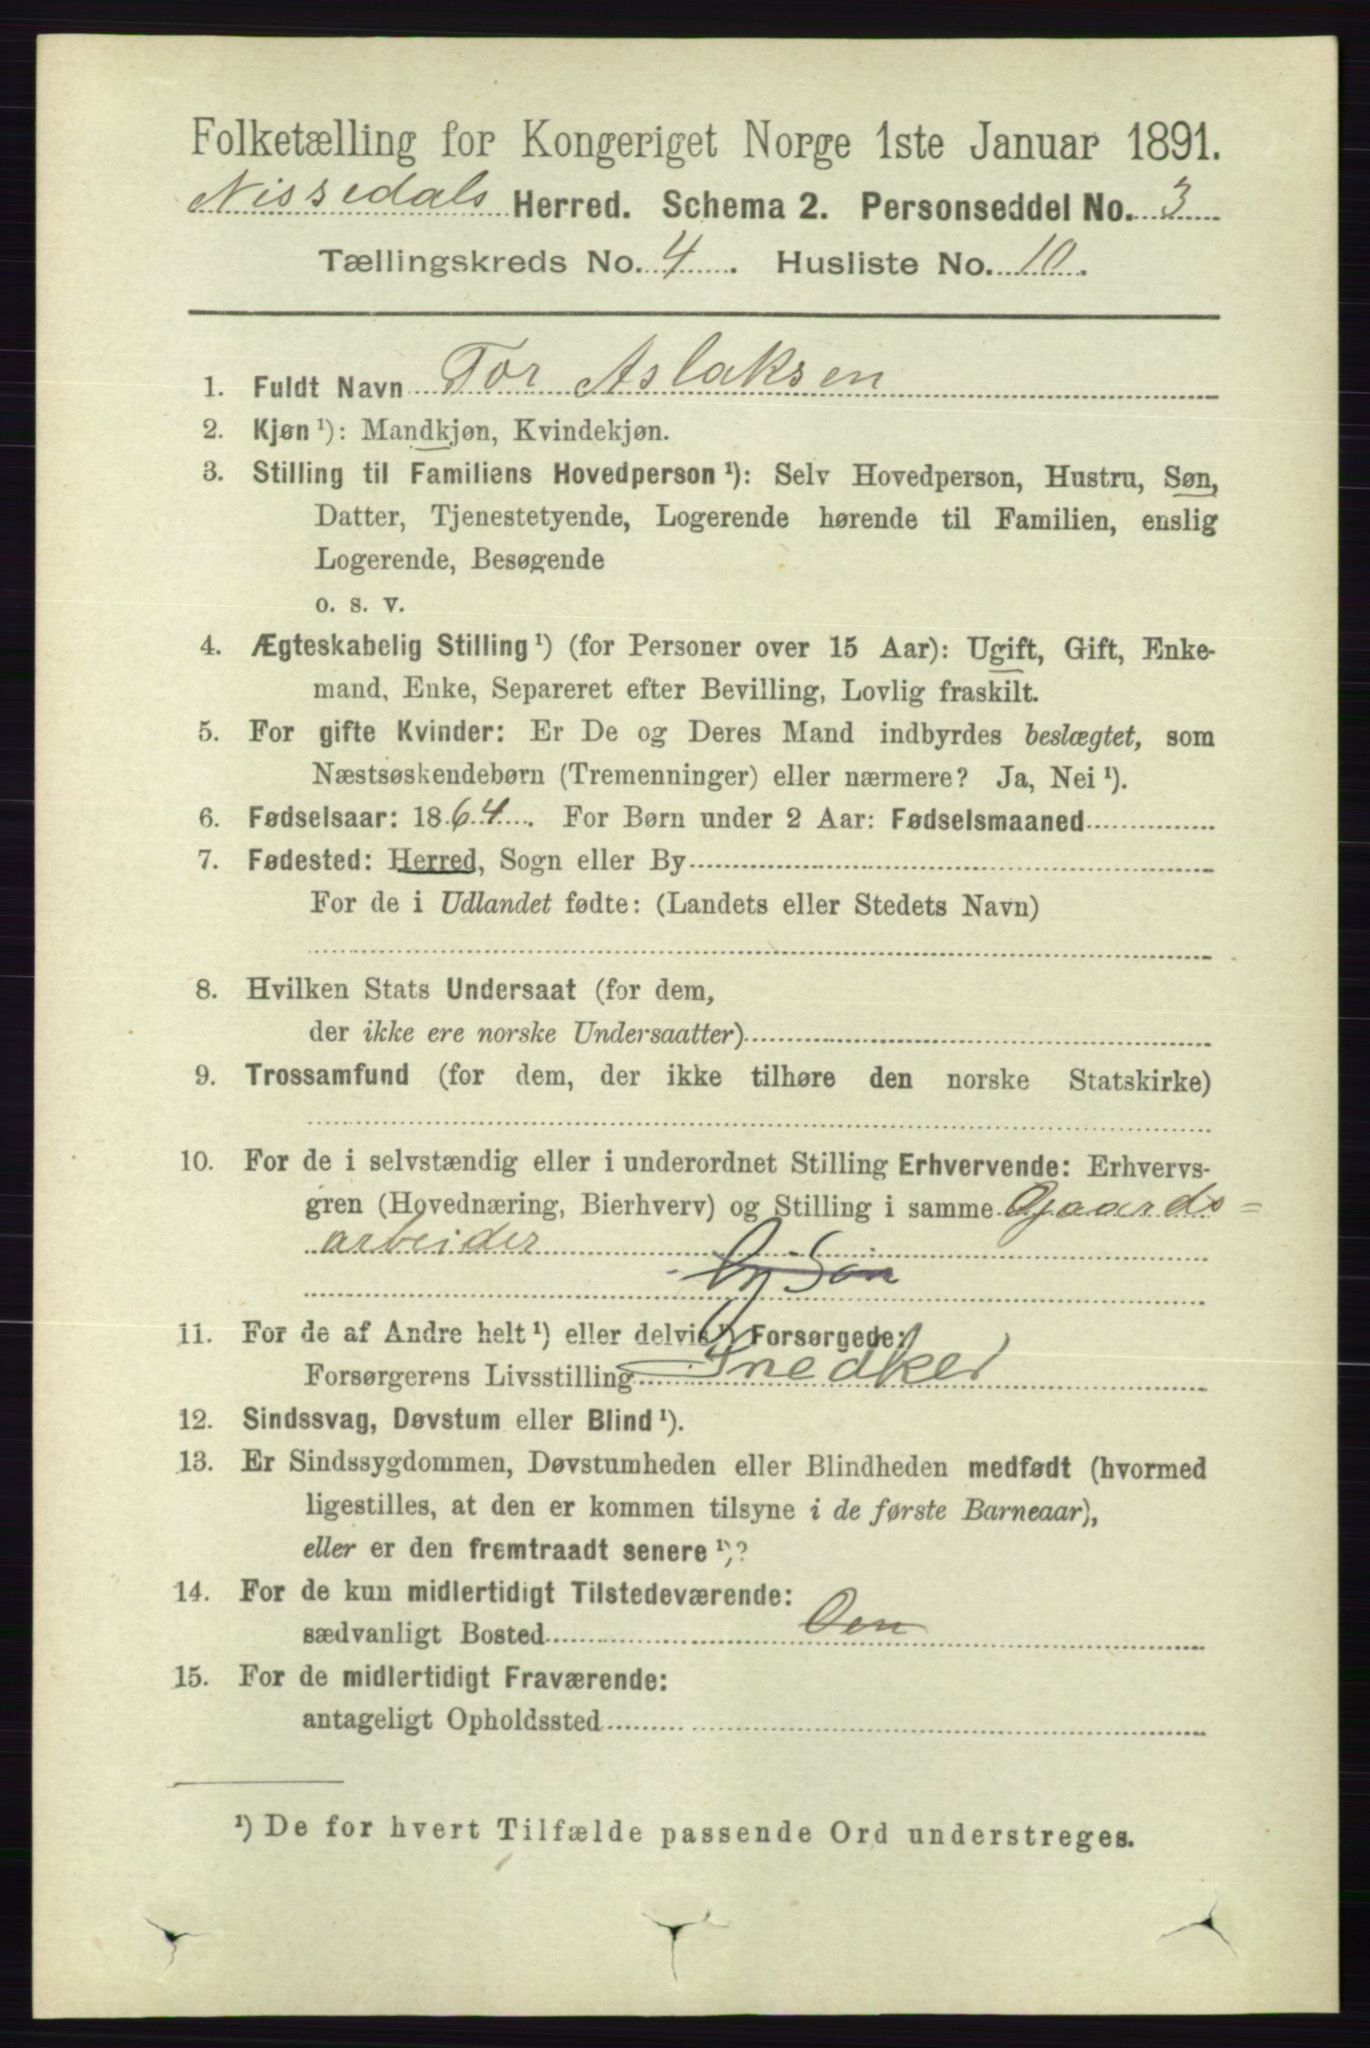 Folketælling for Kongeriget Norge 1ste Januar 1891.
Nissedals Herred. Schema 2. Personseddel No. 3
Tællingskreds No. 4. Husliste No. 10.
1. Fuldt Navn Tor Aslaksen
2. Kjøn ¹): Mandkjøn, Kvindekjøn.
3. Stilling til Familiens Hovedperson ¹): Selv Hovedperson, Hustru, Søn,
Datter, Tjenestetyende, Logerende hørende til Familien, enslig
Logerende, Besøgende
o. s. v.
4. Ægteskabelig Stilling ¹) (for Personer over 15 Aar): Ugift, Gift, Enke-
mand, Enke, Separeret efter Bevilling, Lovlig fraskilt.
5. For gifte Kvinder: Er De og Deres Mand indbyrdes beslægtet, som
Næstsøskendebørn (Tremenninger) eller nærmere? Ja, Nei ¹).
6. Fødselsaar: 1864. For Børn under 2 Aar: Fødselsmaaned
7. Fødested: Herred, Sogn eller By
For de i Udlandet fødte: (Landets eller Stedets Navn)
8. Hvilken Stats Undersaat (for dem,
der ikke ere norske Undersaatter)
9. Trossamfund (for dem, der ikke tilhøre den norske Statskirke)
10. For de i selvstændig eller i underordnet Stilling Erhvervende: Erhvervs-
gren (Hovednæring, Bierhverv) og Stilling i samme Gaards=
arbeider
11. For de af Andre helt ¹) eller delvis ¹) Forsørgede:
Forsørgerens Livsstilling Snedker
12. Sindssvag, Døvstum eller Blind ¹).
13. Er Sindssygdommen, Døvstumheden eller Blindheden medfødt (hvormed
ligestilles, at den er kommen tilsyne i de første Barneaar),
eller er den fremtraadt senere ¹)?
14. For de kun midlertidigt Tilstedeværende:
sædvanligt Bosted
15. For de midlertidigt Fraværende:
antageligt Opholdssted
¹) De for hvert Tilfælde passende Ord understreges.